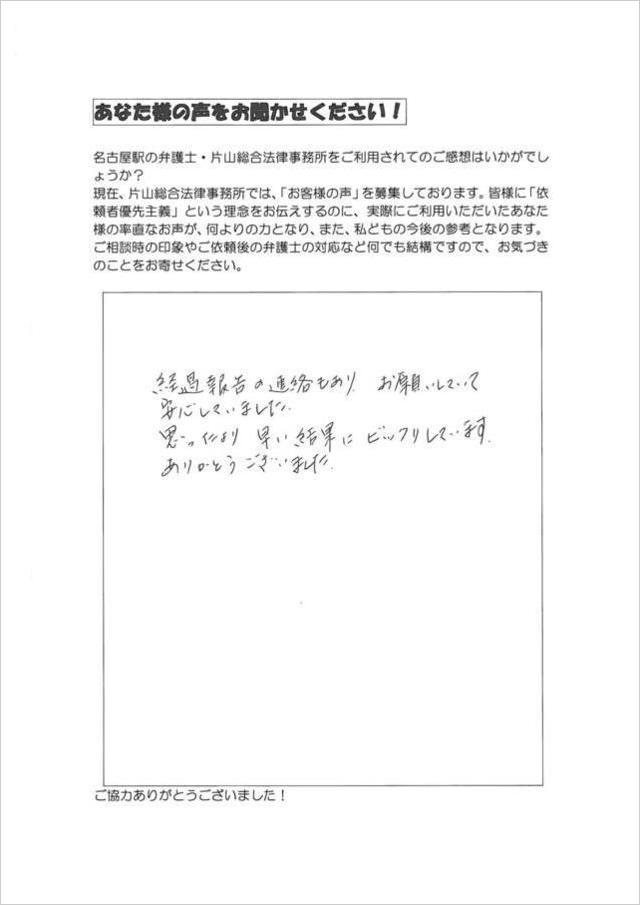 あなた様の声をお聞かせください！
名古屋駅の弁護士・片山総合法律事務所をご利用されてのご感想はいかがでし
ょうか？
現在、片山総合法律事務所では、「お客様の声」を募集しております。皆様に「依
頼者優先主義」という理念をお伝えするのに、実際にご利用いただいたあなた
様の率直なお声が、何よりの力となり、また、私どもの今後の参考となります。
ご相談時の印象やご依頼後の弁護士の対応など何でも結構ですので、お気づき
のことをお寄せください。
経過報告の連絡もあり お願いしていて
安心していました.
思ったより 早い結果に ビックリしています.
ありがとうございました.
ご協力ありがとうございました！